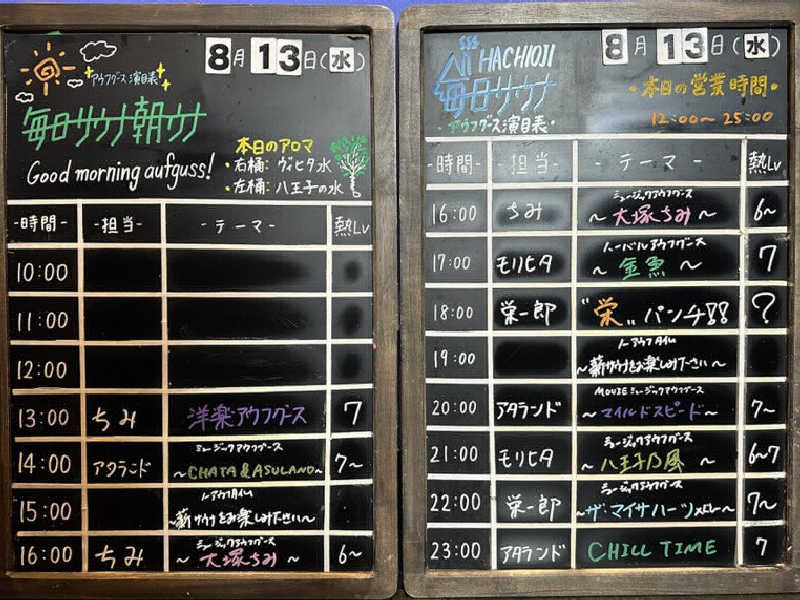 8月13日(水)
アウフグース演目表
毎日サウナ朝ウナ
Good morning aufguss!
本日のアロマ
・右桶: ヴィヒタ水
・左桶: 八王子の水
-時間- -担当- -テーマ- 熱Lv
10:00
11:00
12:00
13:00 ちみ 洋楽アウフグース 7
ミュージックアウフグース
14:00 アタランド ～CHATA & ASULAND～ 7～
ノーアウフタイム
15:00 ～薪サウナをお楽しみ下さい～
ミュージックアウフグース
16:00 ちみ ～大塚ちみ～ 6～
8月13日(水)
HACHIOJI
毎日サウナ
・アウフグース演目表・
・本日の営業時間・
12:00～25:00
-時間- -担当- -テーマ- 熱Lv
ミュージックアウフグース
16:00 ちみ ～大塚ちみ～ 6～
ハーバルアウフグース
17:00 モリヒタ ～金魚～ 7
18:00 栄一郎 "栄"パンチ!! ?
ノーアウフタイム
19:00 ～薪サウナをお楽しみ下さい～
MOVIEミュージックアウフグース
20:00 アタランド ～マイルドスピード～ 7～
ミュージックアウフグース
21:00 モリヒタ ～八王子乃風～ 6～7
ミュージックアウフグース
22:00 栄一郎 ～ザ・マイサハーツメドレー～ 7～
23:00 アタランド CHILL TIME 7